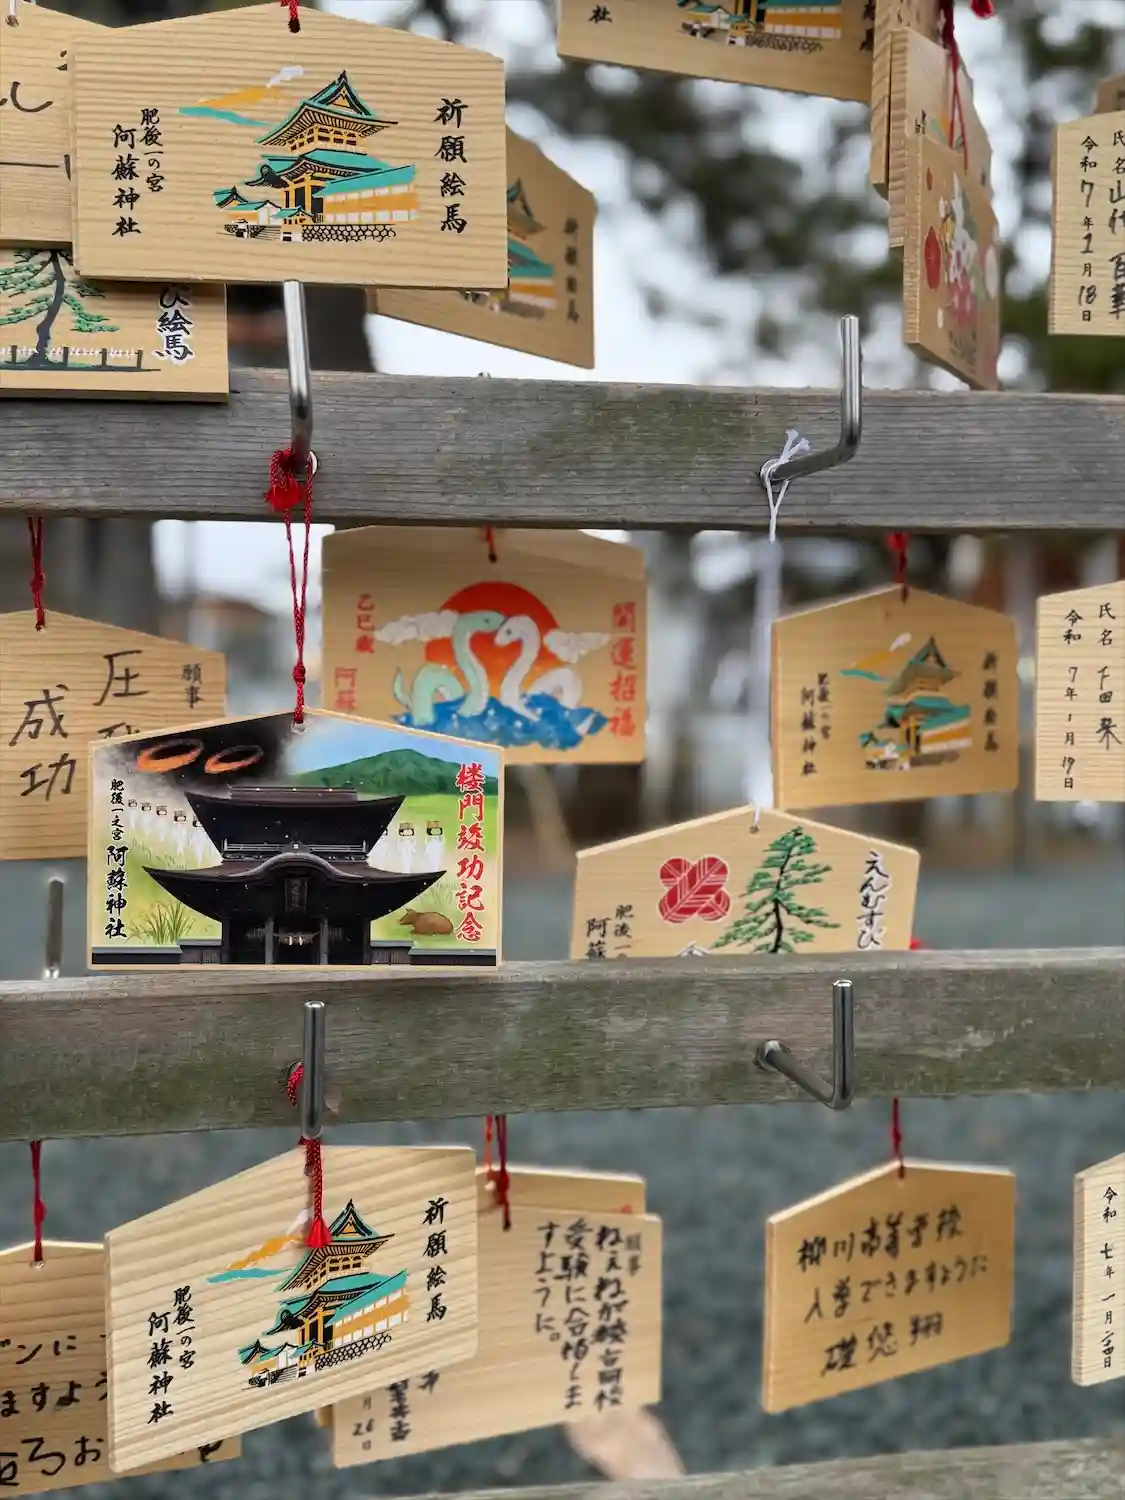 社
祈願絵馬
肥後一の宮
阿蘇神社
び絵馬
祈願絵馬
氏名 山代
令和7年1月18日
開運招福
乙巳歳
阿蘇
願事
圧
成功
楼門竣功記念
肥後一之宮
阿蘇神社
祈願絵馬
肥後一の宮
阿蘇神社
氏名
令和7年1月19日
えんむすび
肥後一
阿蘇
祈願絵馬
肥後一の宮
阿蘇神社
願事
受験に合格しま
すように。
月26日
柳川高等学校
入学できますように
令和七年一月
ンに
ますよう